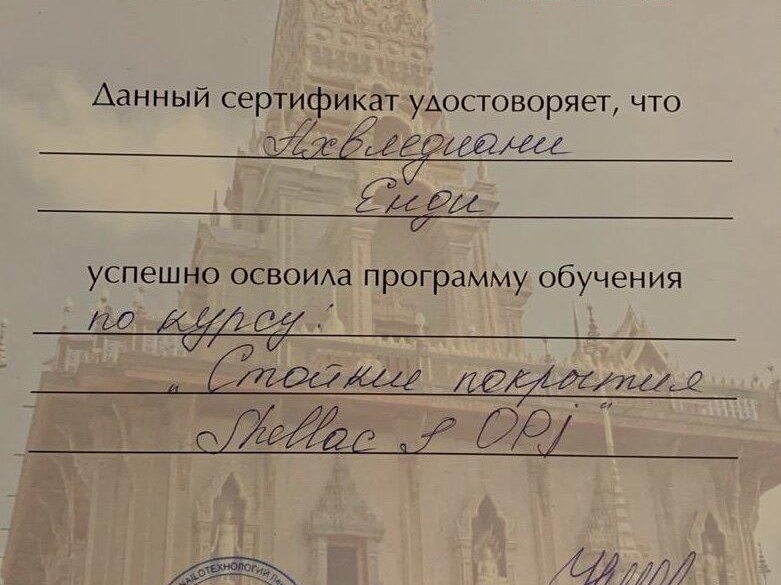 Данный сертификат удостоверяет, что
Ахвледиани
Енди
успешно освоила программу обучения
по курсу:
„Стойкие покрытия
Shellac & OPI"
НАЙЛОТЕХНОЛОГИЙ